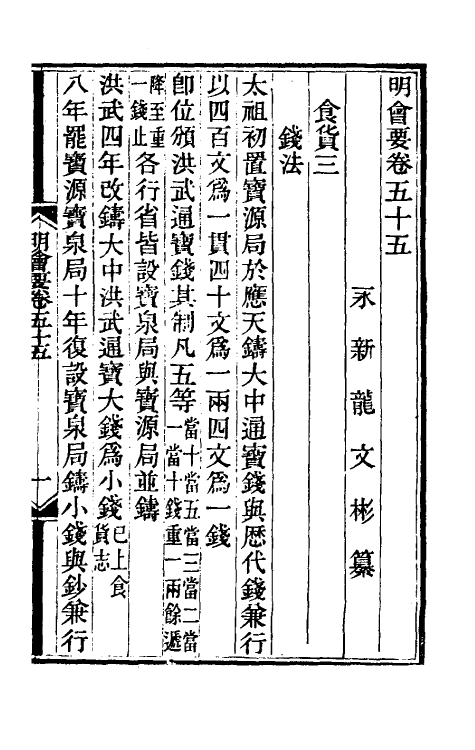 明會要卷五十五
永新龍文彬纂
食貨三
錢法
太祖初置寶源局於應天鑄大中通寶錢與歷代錢兼行
以四百文爲一貫四十文爲一兩四文爲一錢
卽位頒洪武通寶錢其制凡五等當十當五當三當二當一當十錢重一兩餘遞
降至重一錢止各行省皆設寶泉局與寶源局並鑄
洪武四年改鑄大中洪武通寶大錢爲小錢已上食貨志
八年罷寶源寶泉局十年復設寶泉局鑄小錢與鈔兼行
明會要卷五十五
一